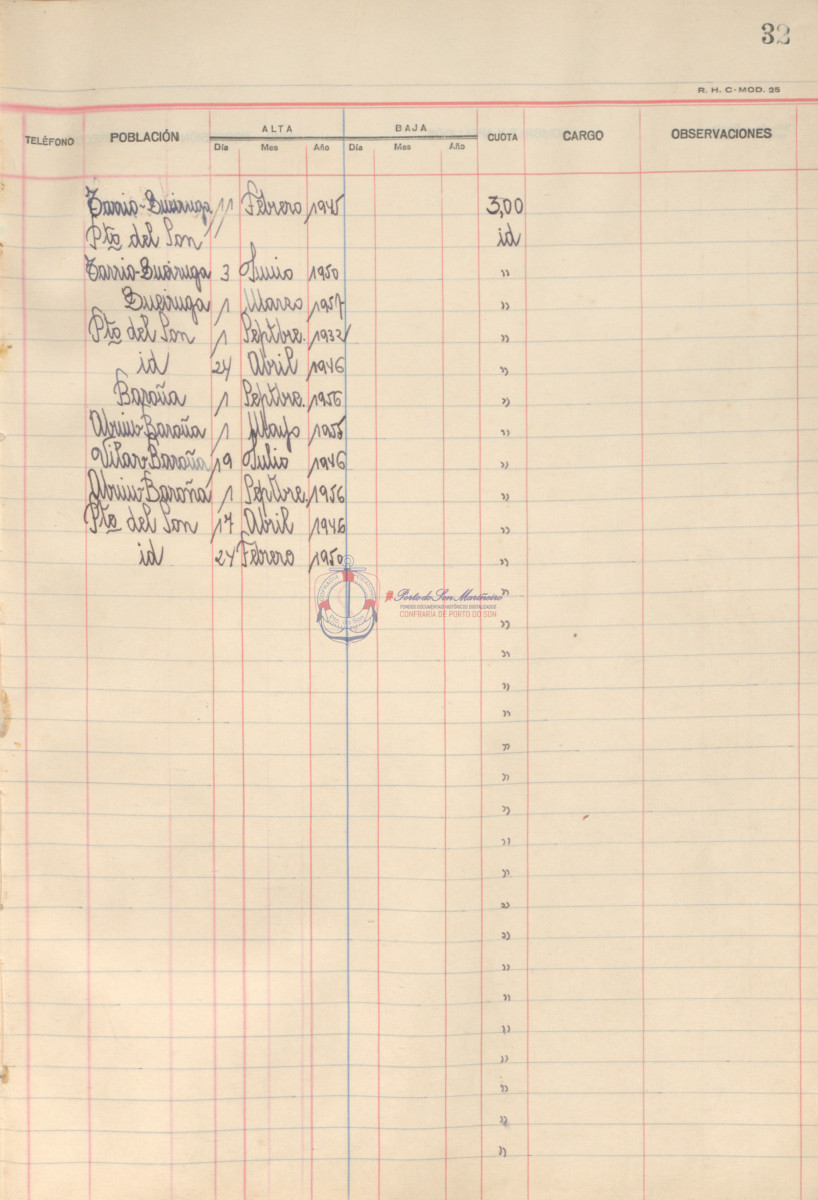 32
R. H. C-MOD. 25
TELÉFONO POBLACIÓN ALTA BAJA CUOTA CARGO OBSERVACIONES
Día Mes Año Día Mes Año
Tarrio-Queiruga 11 Febrero 1945 3,00
Pto del Son " id
Tarrio-Queiruga 3 Junio 1950 "
Queiruga 1 Marzo 1957 "
Pto del Son 1 Septbre. 1932 "
id 24 Abril 1946 "
Baroña 1 Septbre. 1956 "
Abuin-Baroña 1 Mayo 1955 "
Vilar-Baroña 19 Julio 1946 "
Abuin-Baroña 1 Septbre. 1956 "
Pto del Son 17 Abril 1946 "
id 24 Febrero 1950 "
"
Porto do Son Mariñeiro
FONDOS DOCUMENTAIS HISTÓRICOS DIGITALIZADOS
CONFRARÍA DE PORTO DO SON
"
"
"
"
"
"
"
"
"
"
"
"
"
"
"
"
"
"
"